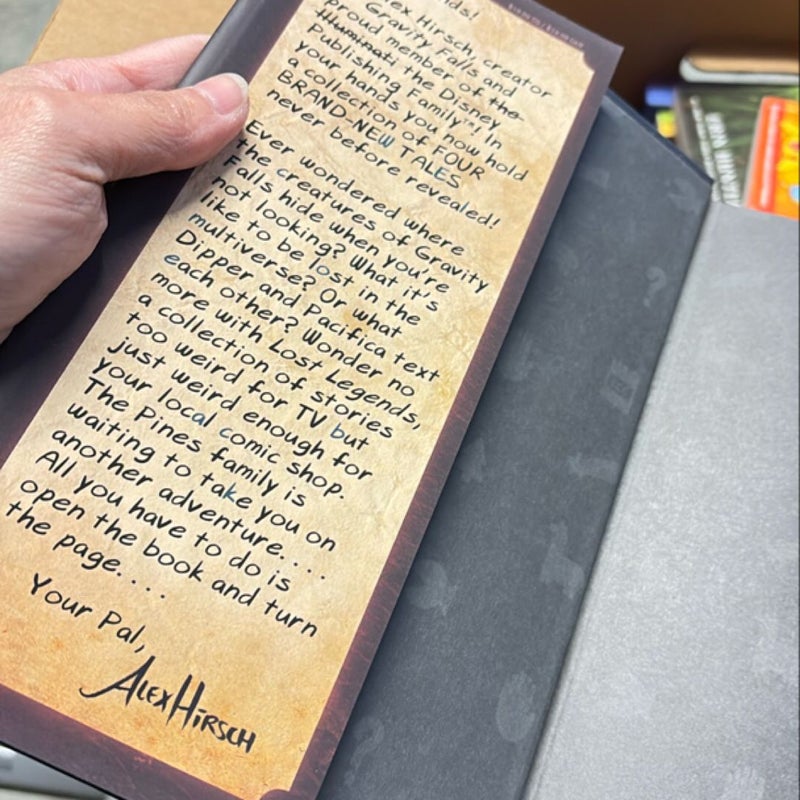 Alex Hirsch, creator
Gravity Falls and
proud member of the
Illuminati the Disney
Publishing Family™! In
your hands you now hold
a collection of FOUR
BRAND-NEW TALES
never before revealed!
Ever wondered where
the creatures of Gravity
Falls hide when you're
not looking? What it's
like to be lost in the
multiverse? Or what
Dipper and Pacifica text
each other? Wonder no
more with Lost Legends,
a collection of stories
too weird for TV but
just weird enough for
your local comic shop.
The Pines family is
waiting to take you on
another adventure. . . .
All you have to do is
open the book and turn
the page. . . .
Your Pal,
Alex Hirsch